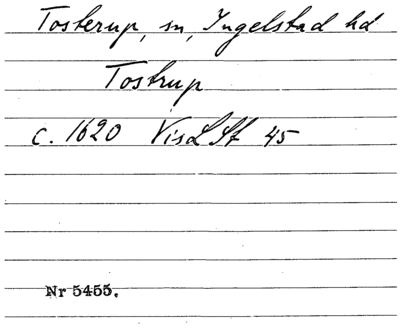 Tosterup, sn, Ingelstad hd
Tostrup
c. 1620 VisLSt 45
Nr 5455.